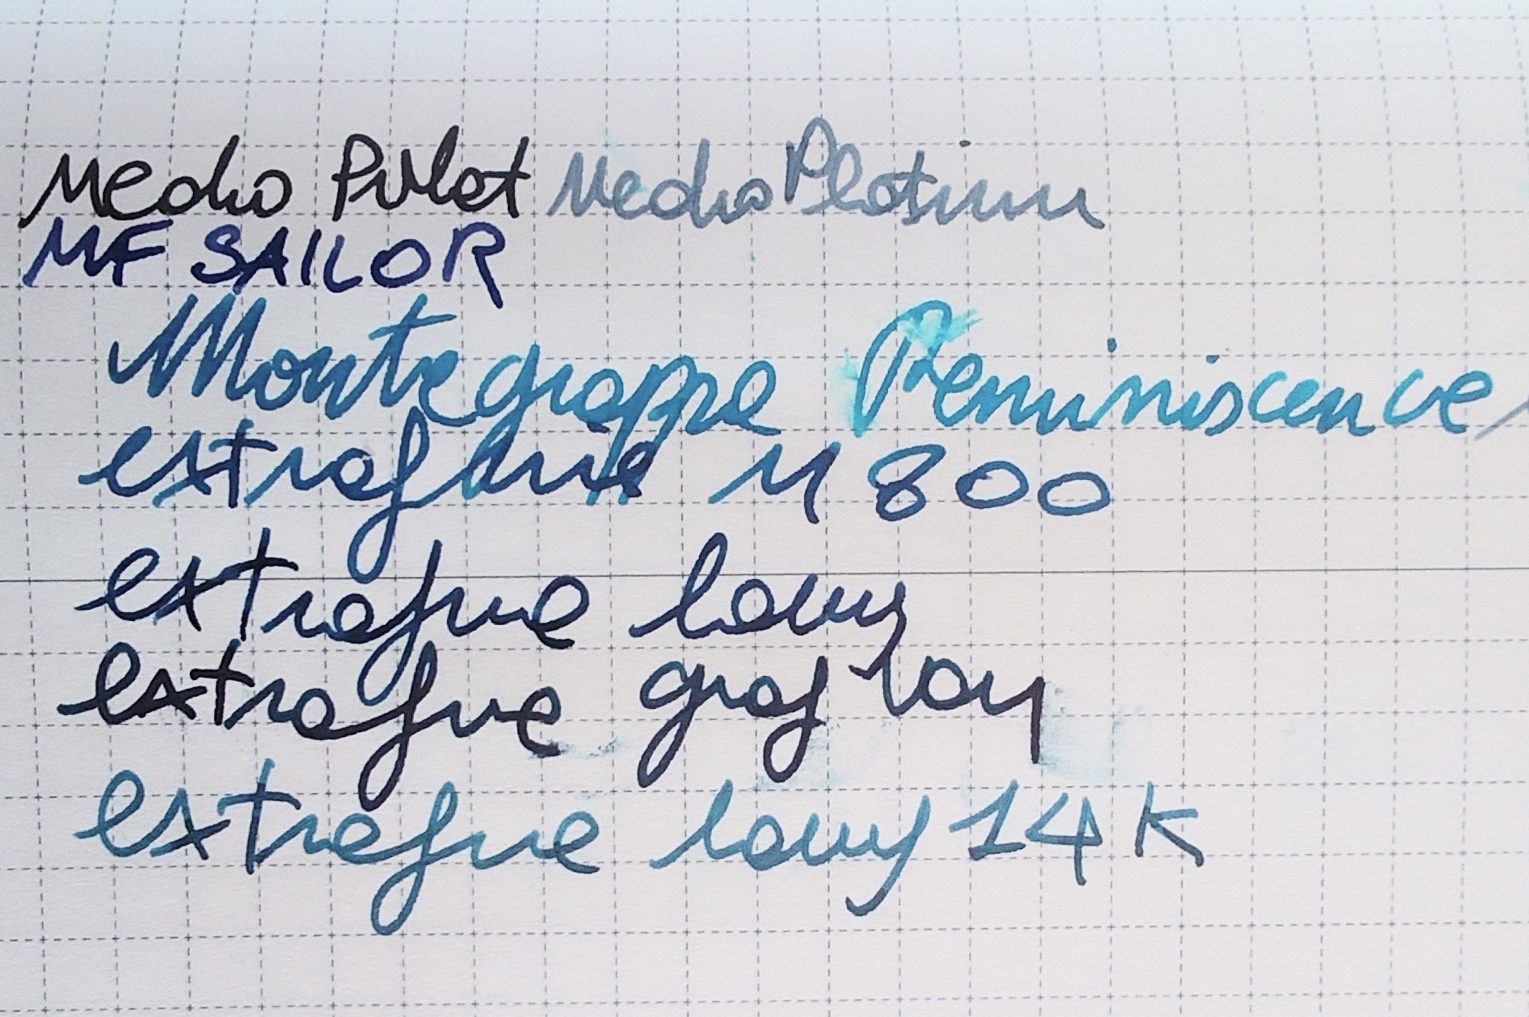 Medio Pilot Medio Platinum
MF SAILOR
Montegrappa Reminiscence
extrafine M800
extrafine lamy
extrafine graf von
extrafine lamy 14K